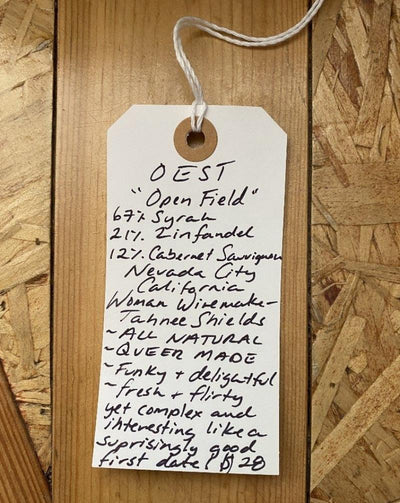 OEST
"Open Field"
67% Syrah
21% Zinfandel
12% Cabernet Sauvignon
Nevada City
California
Woman Winemaker
Tahnee Shields
~ALL NATURAL
~QUEER MADE
~Funky + delightful
~fresh + flirty
yet complex and
interesting like a
suprisingly good
first date! $28